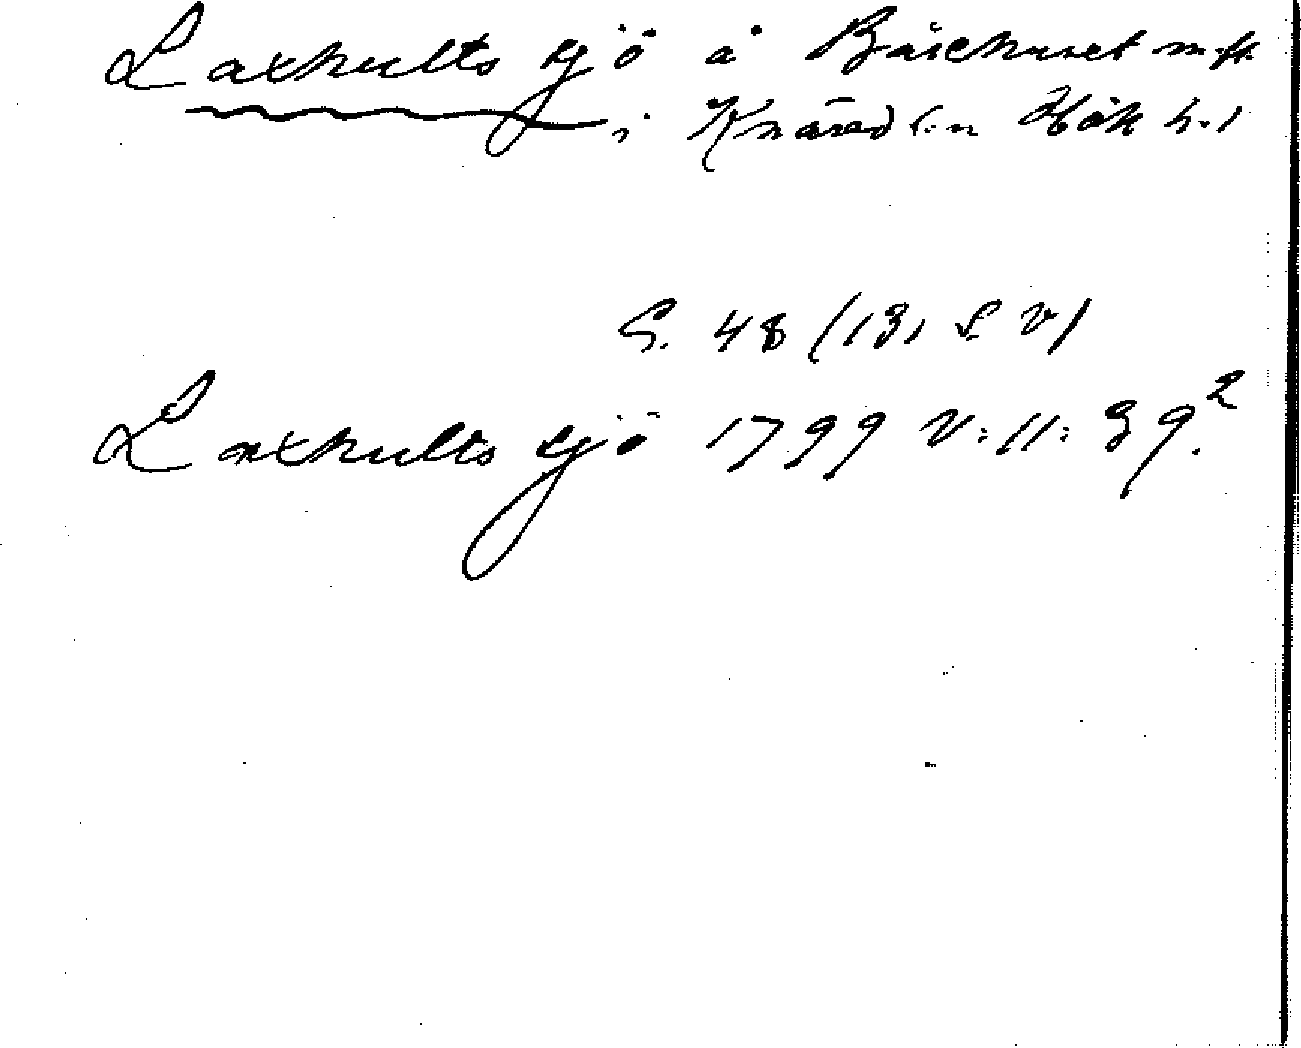 Laxhults sjö å Båsehuset m. fl.
i Knäred s:n Hök h. /
S. 48 (13, S. V)
Laxhults sjö 1799 V: 11: 39.²